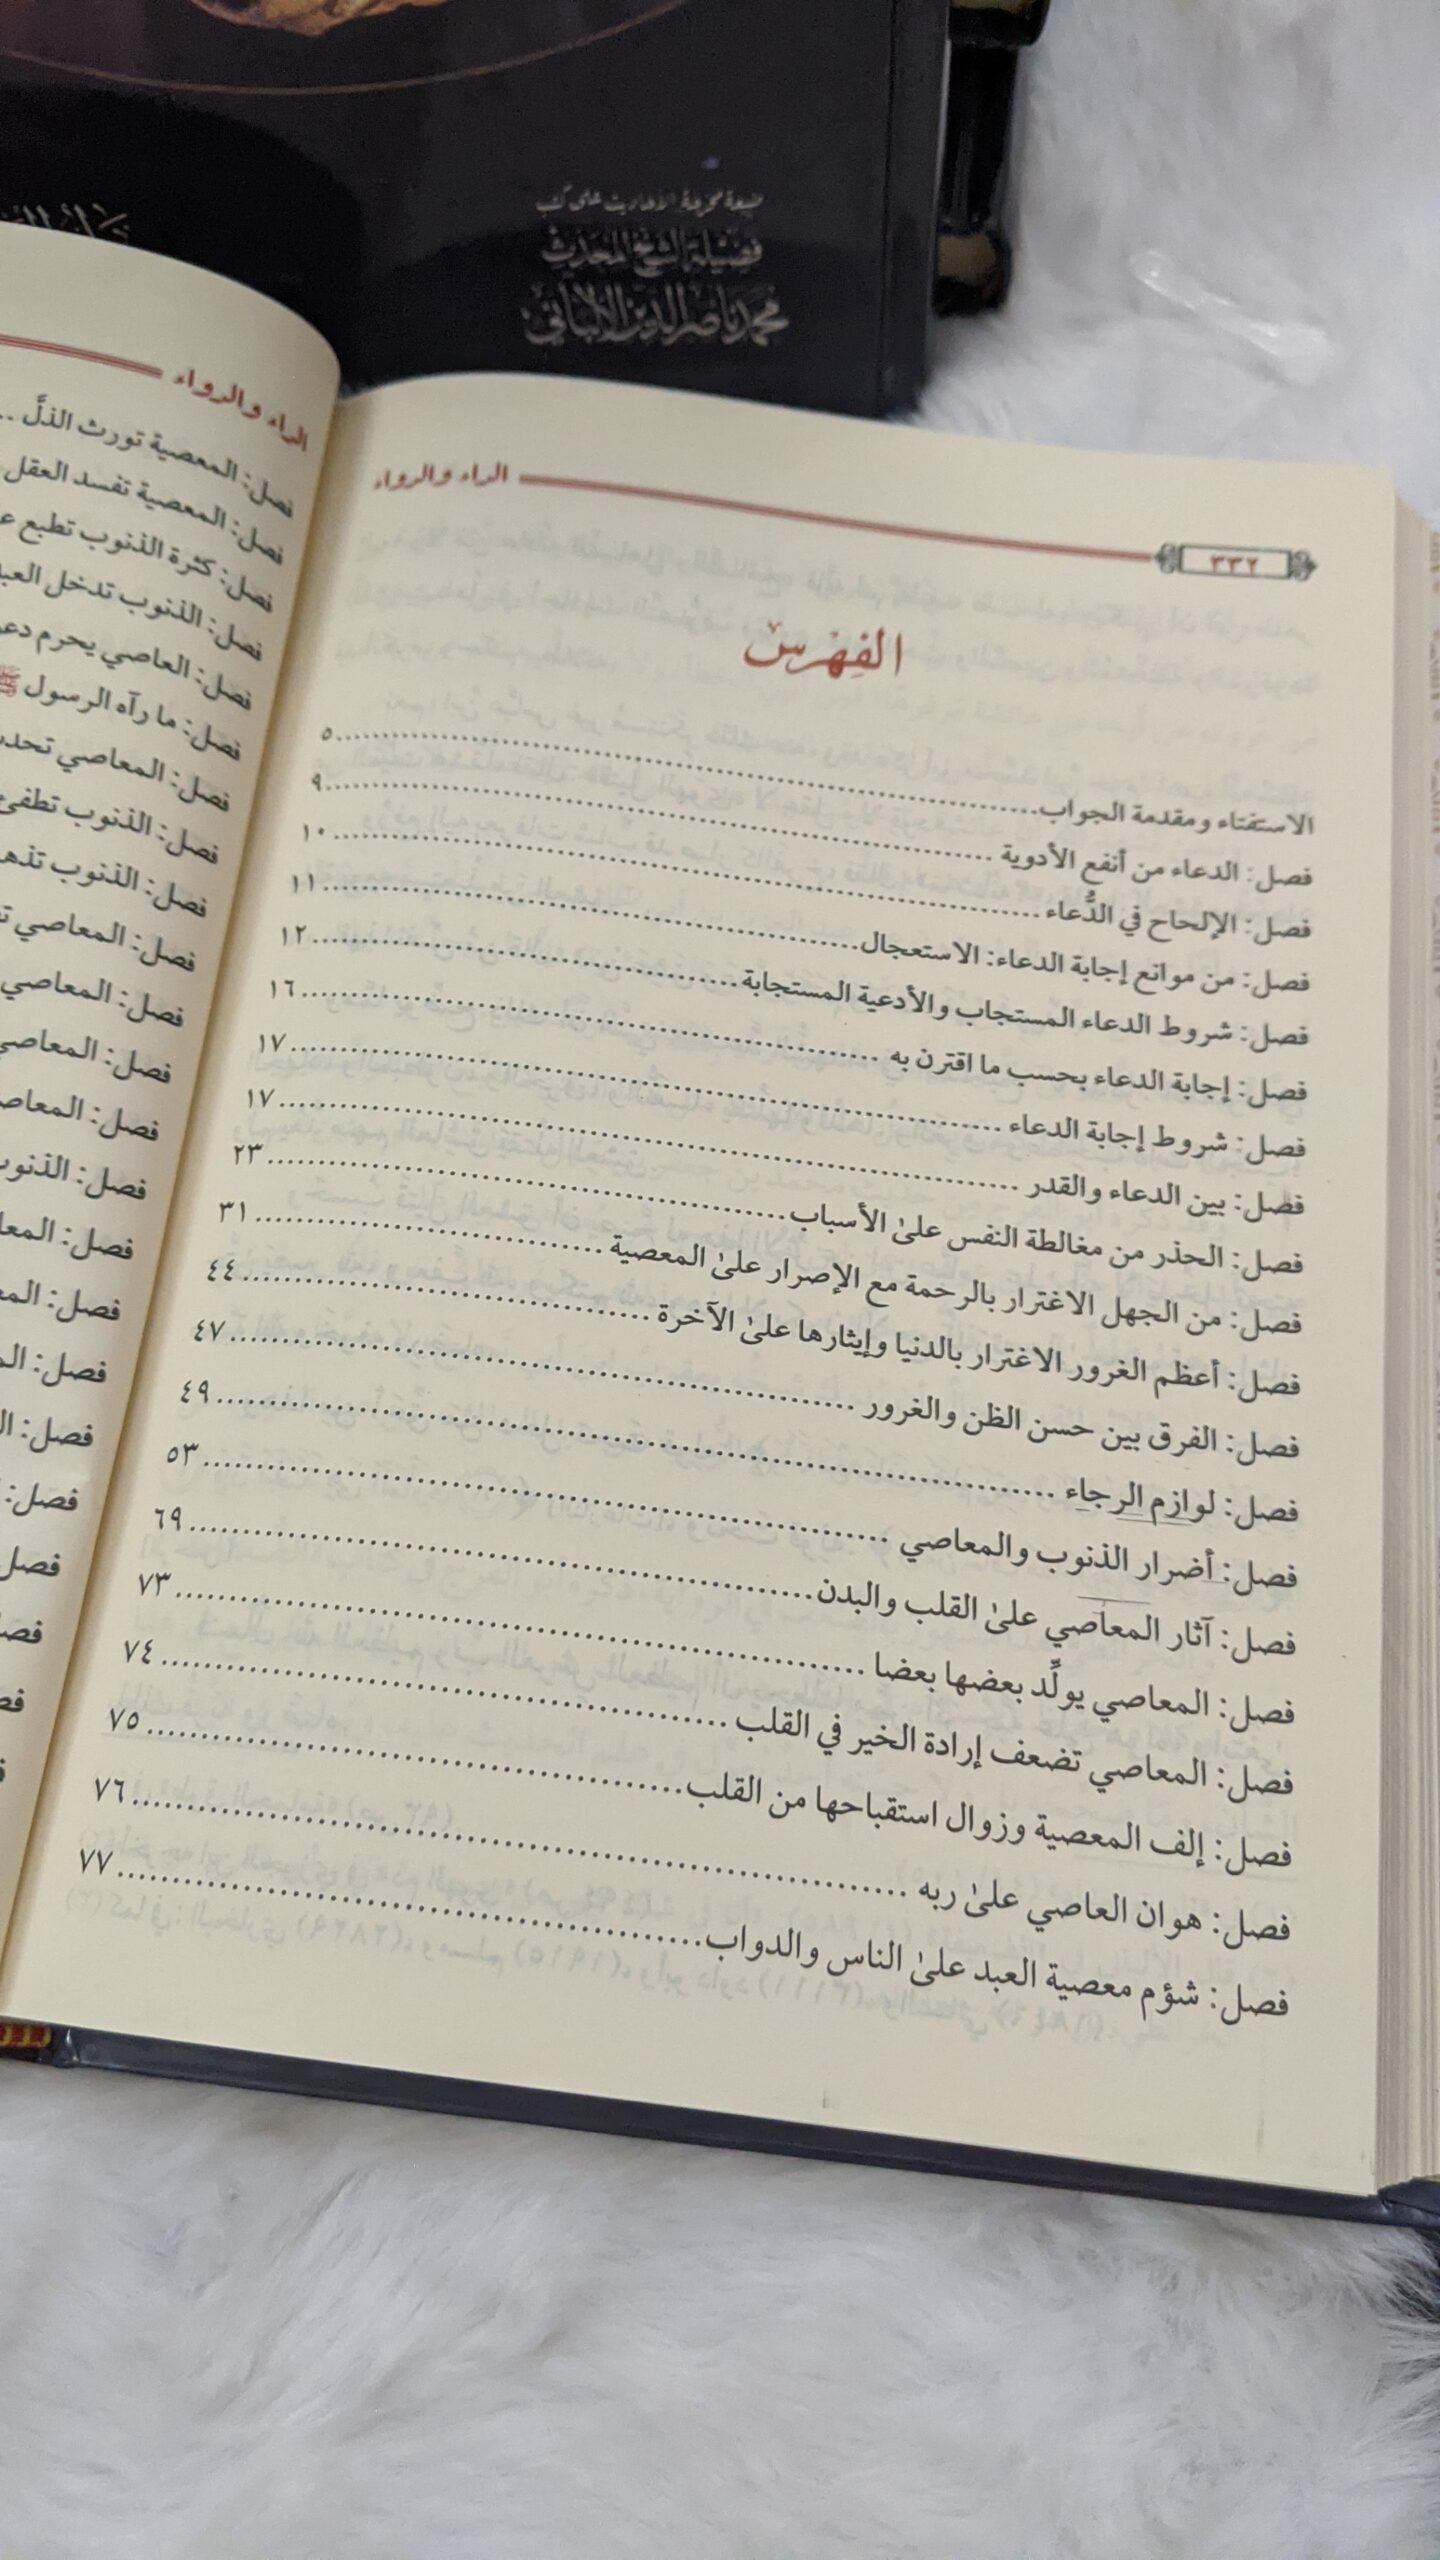 طبعة مخرجة الأحاديث على كتب
فضيلة الشيخ المحدث
محمد ناصر الدين الألباني
الداء والدواء
٣٣٢
الفهرس
الاستفتاء ومقدمة الجواب ٥
فصل: الدعاء من أنفع الأدوية ٩
فصل: الإلحاح في الدُّعاء ١٠
فصل: من موانع إجابة الدعاء: الاستعجال ١١
فصل: شروط الدعاء المستجاب والأدعية المستجابة ١٢
فصل: إجابة الدعاء بحسب ما اقترن به ١٦
فصل: شروط إجابة الدعاء ١٧
فصل: بين الدعاء والقدر ١٧
فصل: الحذر من مغالطة النفس علىٰ الأسباب ٢٣
فصل: من الجهل الاغترار بالرحمة مع الإصرار علىٰ المعصية ٣١
فصل: أعظم الغرور الاغترار بالدنيا وإيثارها علىٰ الآخرة ٤٤
فصل: الفرق بين حسن الظن والغرور ٤٧
فصل: لوازم الرجاء ٤٩
فصل: أضرار الذنوب والمعاصي ٥٣
فصل: آثار المعاصي علىٰ القلب والبدن ٦٩
فصل: المعاصي يولِّد بعضها بعضا ٧٣
فصل: المعاصي تضعف إرادة الخير في القلب ٧٤
فصل: إلف المعصية وزوال استقباحها من القلب ٧٥
فصل: هوان العاصي علىٰ ربه ٧٦
فصل: شؤم معصية العبد علىٰ الناس والدواب ٧٧
الداء والدواء
فصل: المعصية تورث الذلَّ
فصل: المعصية تفسد العقل
فصل: كثرة الذنوب تطبع
فصل: الذنوب تدخل
فصل: العاصي يحرم
فصل: ما رآه الرسول ﷺ
فصل: المعاصي
فصل: الذنوب
فصل: الذنوب
فصل: المعاصي
فصل: المعاصي
فصل: المعاصي
فصل:
فصل:
فصل:
فصل:
فصل:
فصل:
فصل: